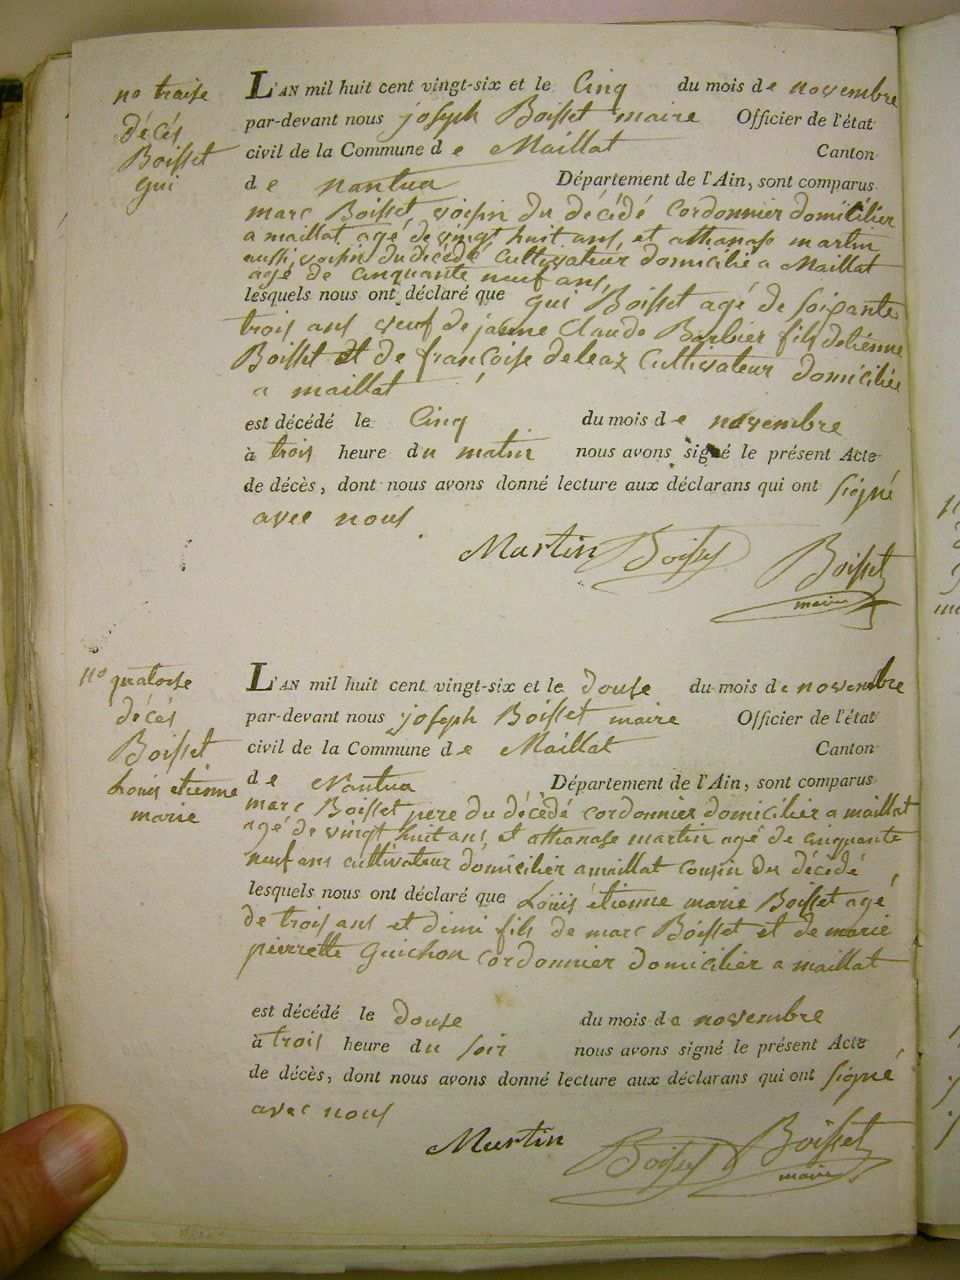 no traise
décés
Boisset
gui
L'AN mil huit cent vingt-six et le Cinq du mois de novembre
par-devant nous joseph Boisset maire Officier de l'état
civil de la Commune de Maillat Canton
de nantua Département de l'Ain, sont comparus
marc Boisset voisin du décédé cordonnier domicilier
a maillat agé de vingt huit ans, et athanase martin
aussi voisin du décédé cultivateur domicilié a Maillat
agé de cinquante neuf ans,
lesquels nous ont déclaré que gui Boisset agé de soixante
trois ans veuf de jeanne Claude Barbier fils detiénne
Boisset et de françoise deleaz Cultivateur domiciliée
a maillat
est décédé le Cinq du mois de novembre
à trois heure du matin nous avons signé le présent Acte
de décès, dont nous avons donné lecture aux déclarans qui ont signé
avec nous
Martin Boisset Boisset
maire
no quatorse
décés
Boisset
Louis etienne
marie
L'AN mil huit cent vingt-six et le douse du mois de novembre
par-devant nous joseph Boisset maire Officier de l'état
civil de la Commune de Maillat Canton
de Nantua Département de l'Ain, sont comparus
marc Boisset pere du décédé cordonnier domicilier a maillat
agé de vingt huit ans, et athanase martin agé de cinquante
neuf ans cultivateur domicilier a maillat cousin du décédé
lesquels nous ont déclaré que Louis étienne marie Boisset agé
de trois ans et dimi fils de marc Boisset et de marie
pierrette Guichon cordonnier domicilier a maillat
est décédé le douse du mois de novembre
à trois heure du soir nous avons signé le présent Acte
de décès, dont nous avons donné lecture aux déclarans qui ont signé
avec nous
Martin Boisset Boisset
maire